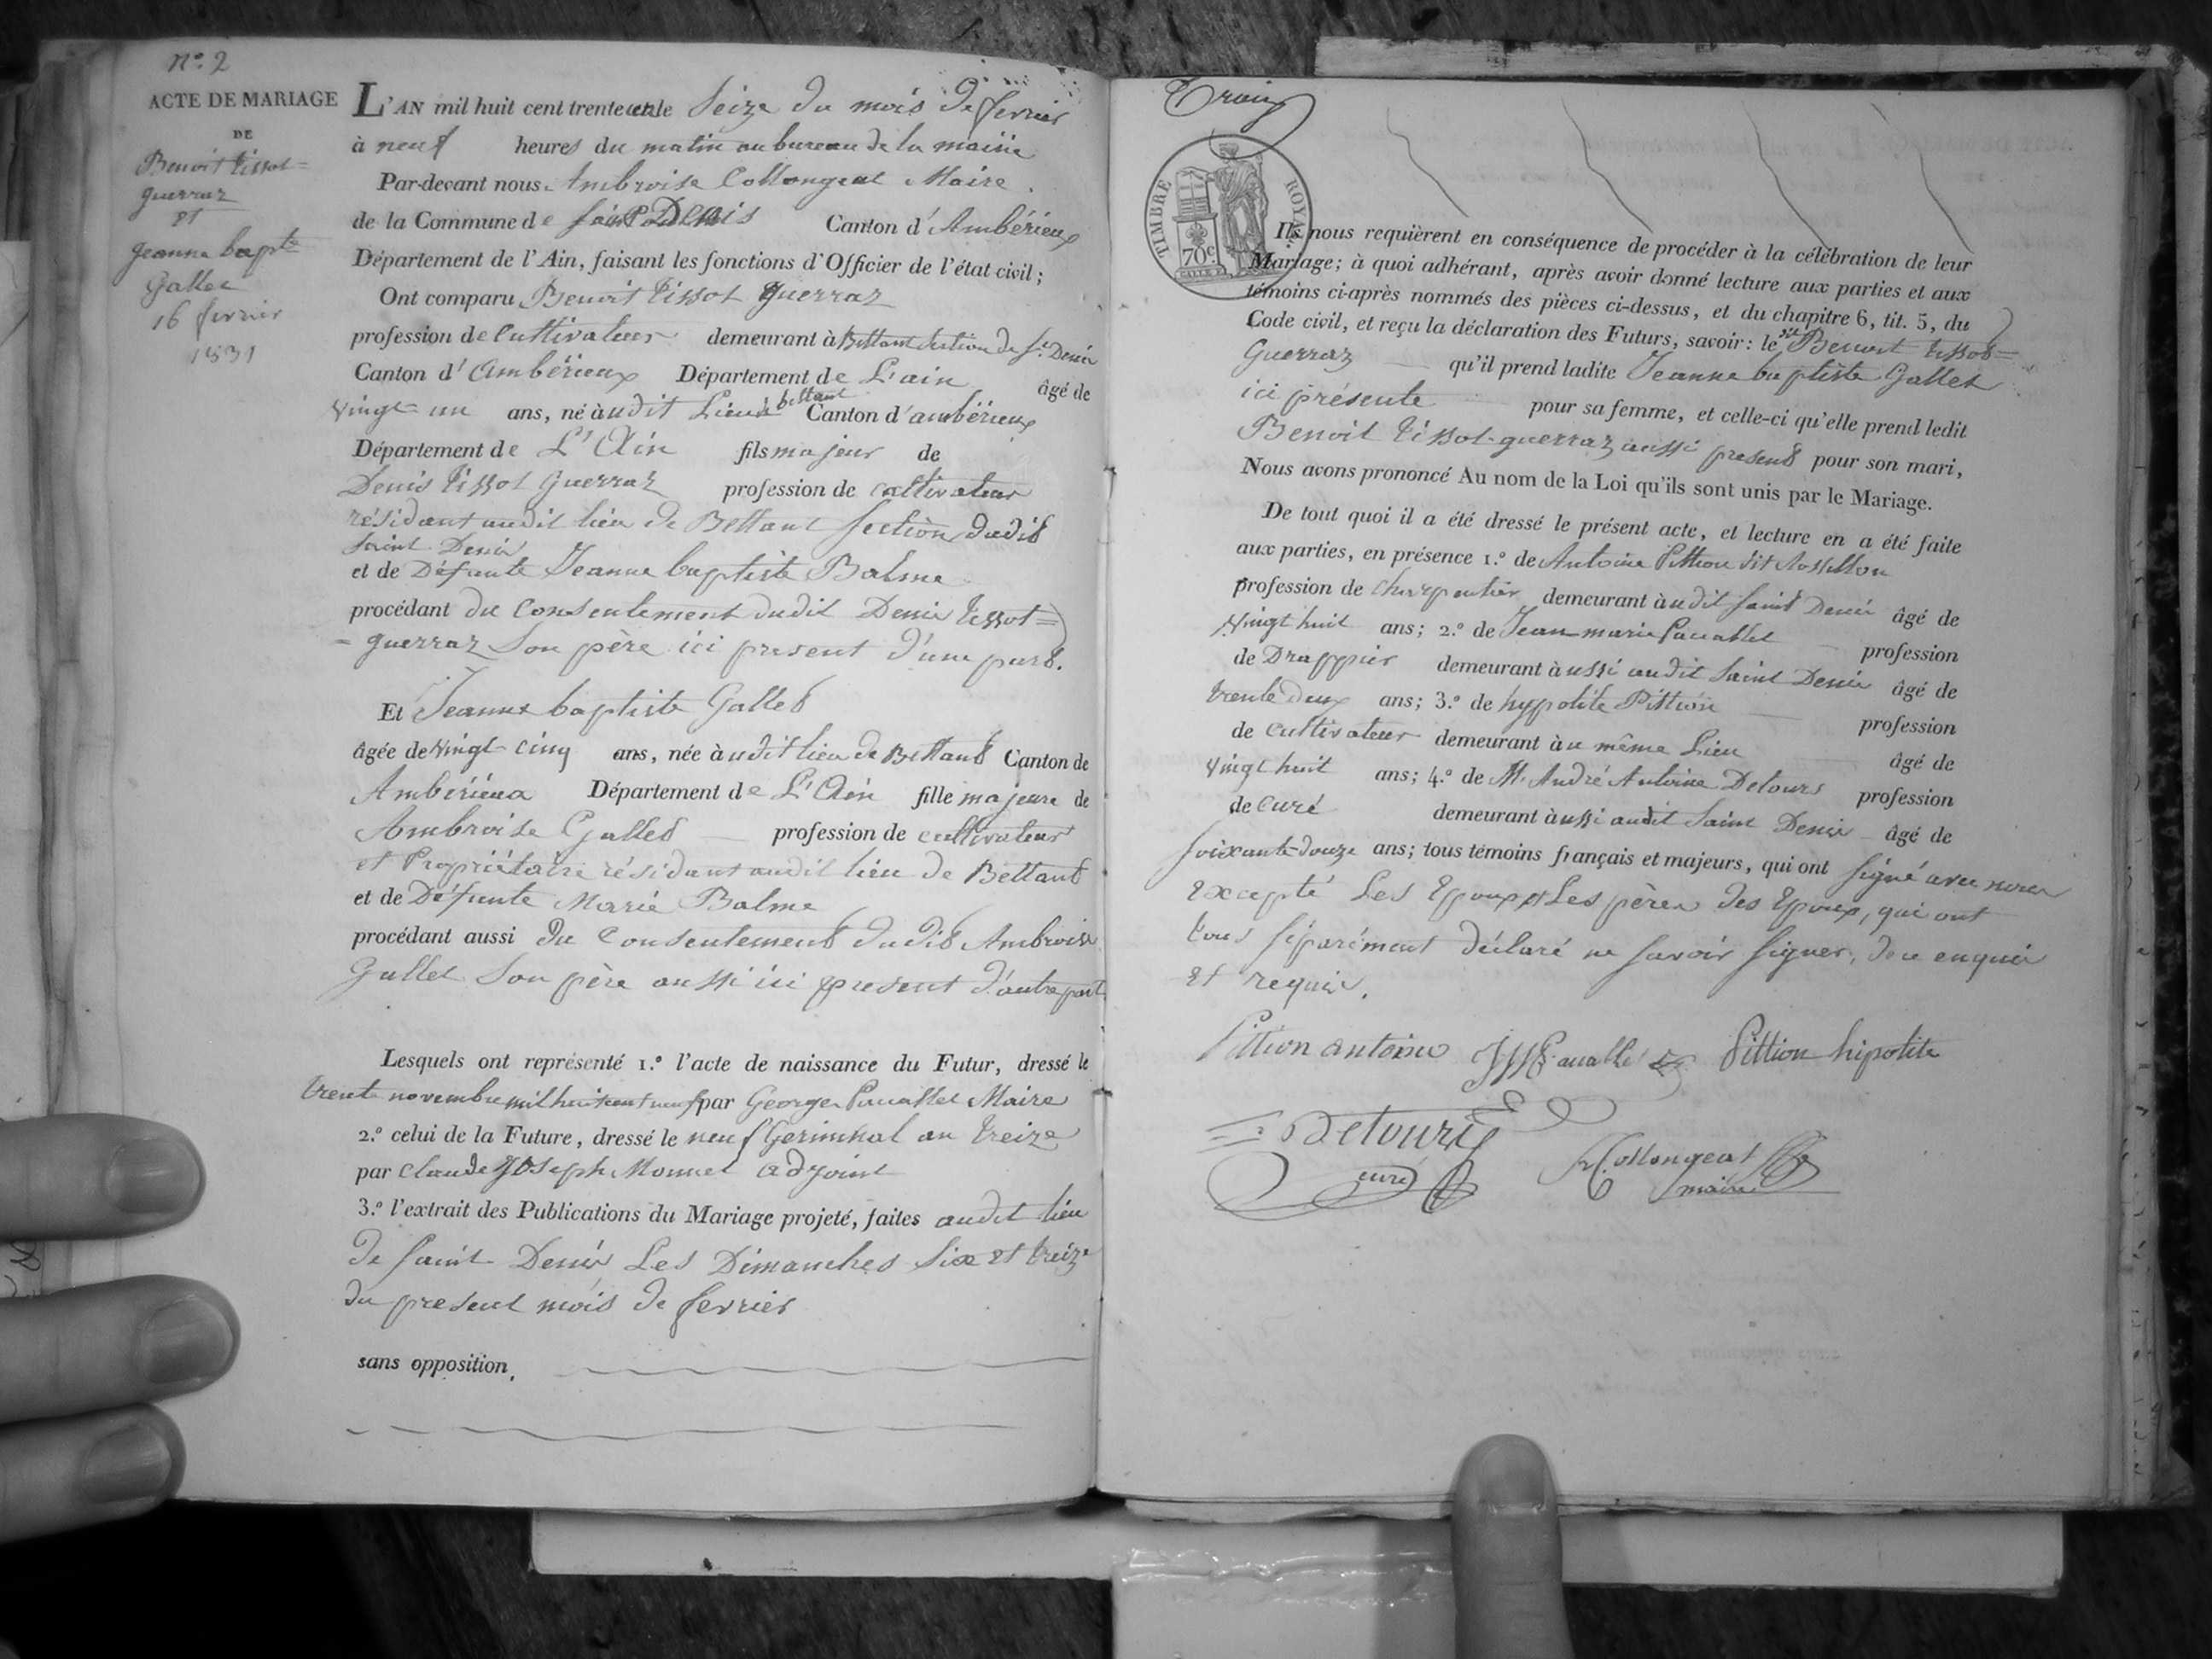 N.° 2
ACTE DE MARIAGE
DE
Benoit tissot=
guerraz
et
jeanne bapte
Gallet
16 fevrier
1831
L'AN mil huit cent trente un le Seize du mois de fevrier
à neuf heures du matin au bureau de la mairie
Par-devant nous Ambroise Collongeat Maire
de la Commune de Saint Denis Canton d'Ambérieux
Département de l'Ain, faisant les fonctions d'Officier de l'état civil;
Ont comparu Benoit tissot guerraz
profession de Cultivateur demeurant à Bettant Section de St. Denis
Canton d'Ambérieux Département de L'ain âgé de
vingt un ans, né audit Lieu de bettant Canton d'ambérieux
Département de L'Ain fils majeur de
Denis tissot Guerraz profession de cultivateur
résidant audit lieu de Bettant Section dudit
Saint Denis
et de Défunte Jeanne baptiste Balme
procédant du Consentement dudit Denis tissot=
=guerraz Son père ici present d'une part.
Et Jeanne baptiste Gallet
âgée de vingt cinq ans, née audit lieu de Bettant Canton de
Ambérieux Département de L'Ain fille majeure de
Ambroise Gallet profession de cultivateur
et Propriétaire résidant audit lieu de Bettant
et de Défunte Marie Balme
procédant aussi du Consentement dudit Ambroise
Gallet Son père aussi ici present d'autre part
Lesquels ont représenté 1.° l'acte de naissance du Futur, dressé le
trente novembre mil huit cent neuf par George Pauallet Maire
2.° celui de la Future, dressé le neuf Germinal an treize
par Claude Joseph Monnet adjoint
3.° l'extrait des Publications du Mariage projeté, faites audit lieu
de Saint Denis Les Dimanches Six et treize
du present mois de fevrier
sans opposition.
Trois
TIMBRE ROYAL.
70c.
Ils nous requièrent en conséquence de procéder à la célébration de leur
Mariage; à quoi adhérant, après avoir donné lecture aux parties et aux
témoins ci-après nommés des pièces ci-dessus, et du chapitre 6, tit. 5, du
Code civil, et reçu la déclaration des Futurs, savoir: le dit Benoit tissot=
Guerraz qu'il prend ladite Jeanne baptiste Gallet
ici présente pour sa femme, et celle-ci qu'elle prend ledit
Benoit tissot-guerraz aussi present pour son mari,
Nous avons prononcé Au nom de la Loi qu'ils sont unis par le Mariage.
De tout quoi il a été dressé le présent acte, et lecture en a été faite
aux parties, en présence 1.° de Antoine Pittion dit
profession de Charpentier demeurant audit Saint Denis âgé de
vingt huit ans; 2.° de Jean marie Pauallet profession
de Drappier demeurant aussi audit Saint Denis âgé de
trente deux ans; 3.° de hypolite Pittion profession
de Cultivateur demeurant au même Lieu âgé de
vingt huit ans; 4.° de M. André Antoine Detours profession
de Curé demeurant aussi audit Saint Denis âgé de
Soixante-douze ans; tous témoins français et majeurs, qui ont Signé avec nous
Excepté Les Epoux et Les pères des Epoux, qui ont
tous séparément déclaré ne savoir signer, de ce enquis
et requis.
Pittion antoine JM Pauallet Pittion hipolite
Detours
curé
Collongeat
maire